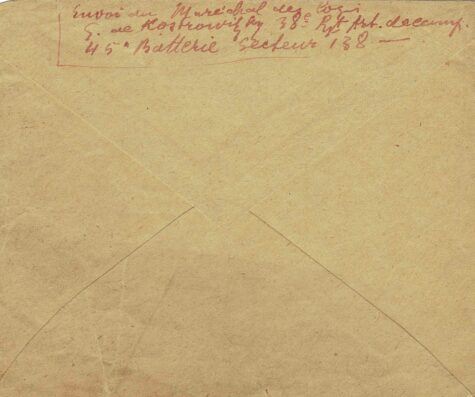 Envoi du Maréchal des Logis
G. de Kostrowitzky 38e Rgt Art. de camp.
45e Batterie Secteur 138 —